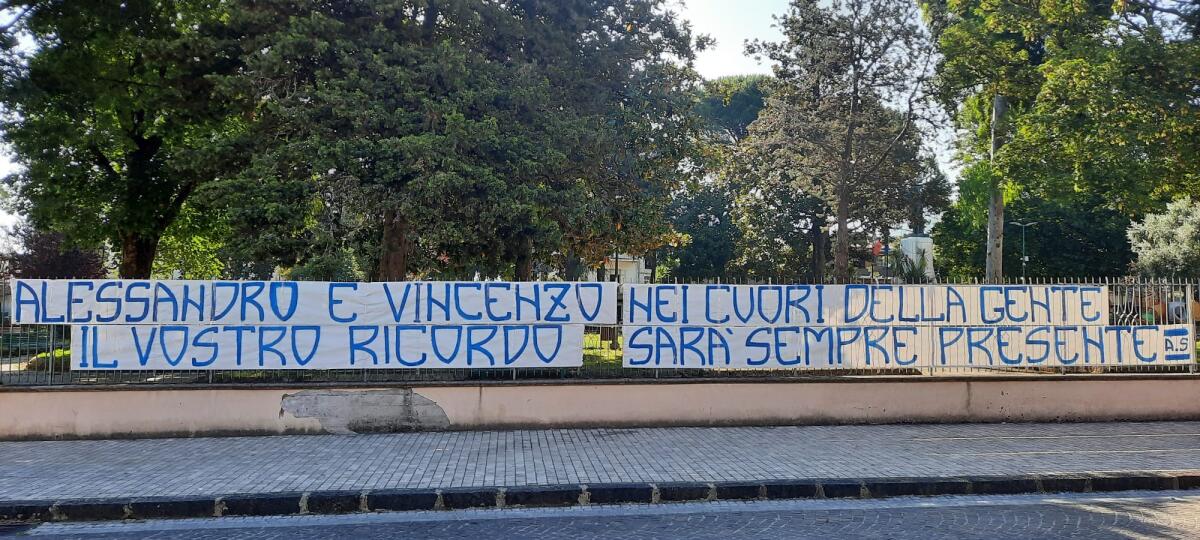 ALESSANDRO E VINCENZO NEI CUORI DELLA GENTE
IL VOSTRO RICORDO SARA' SEMPRE PRESENTE A.S